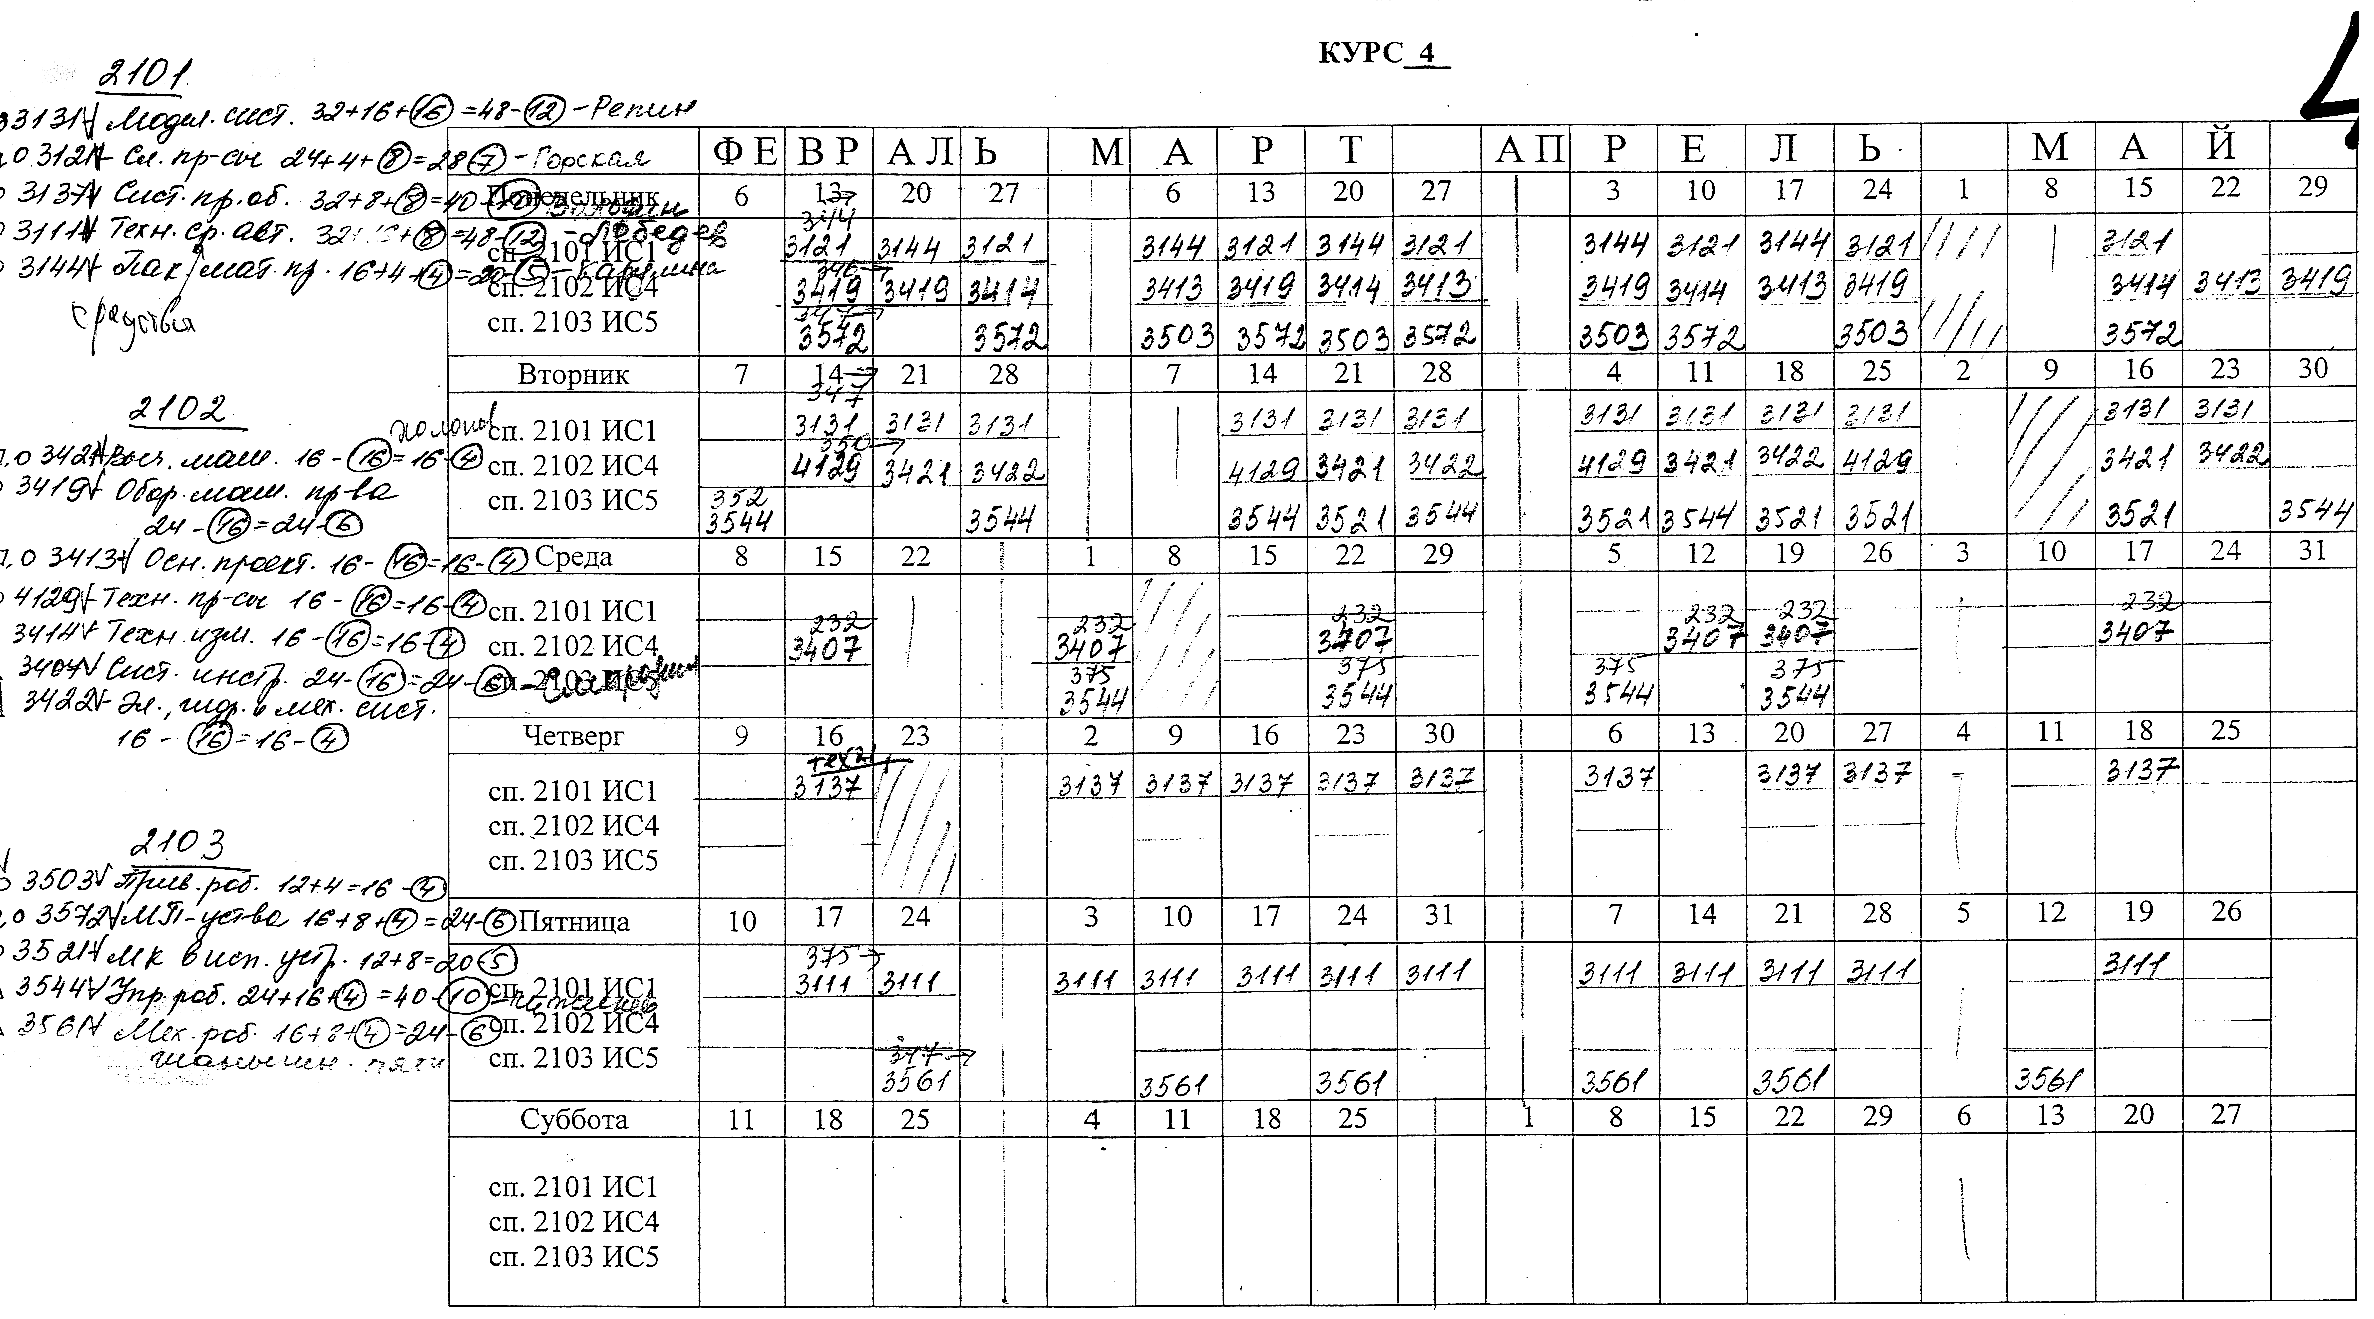 КУРС 4
4
2101
3131 Модел. сист. 32+16+(16)=48-(12)-Репин
3121 Сл. пр-сы 24+4+(8)=28(7)-Горская
3137 Сист. пр. об. 32+8+(8)=40
3111 Техн. ср. авт. +(8)=48-(12)-Лебедев
3144 Пак/мат. пр. 16+4+(4)=20-(5)
средствия
2102
3421 Выч. маш. 16-(16)=16-(4)
3419 Обор. маш. пр-ва
24-(16)=24-(6)
3413 Осн. проект. 16-(16)=16-(4)
4129 Техн. пр-сы 16-(16)=16-(4)
3414 Техн. изм. 16-(16)=16-(4)
3407 Сист. инстр. 24-(16)=24-(6)
3422 Эл., гидр. и мех. сист.
16-(16)=16-(4)
2103
3503 Прив. роб. 12+4=16-(4)
3572 МП-уства 16+8+(4)=24-(6)
3521 МК в исп. устр. 12+8=20-(5)
3544 Упр. роб. 24+16+(4)=40-(10)
3561 Мех. роб. 16+8+(4)=24-(6)
ФЕВРАЛЬ МАРТ АПРЕЛЬ МАЙ
Понедельник 6 13 20 27 6 13 20 27 3 10 17 24 1 8 15 22 29
344
сп. 2101 ИС1 3121 3144 3121 3144 3121 3144 3121 3144 3121 3144 3121 3121
346
сп. 2102 ИС4 3419 3419 3414 3413 3419 3414 3413 3419 3414 3413 3419 3414 3413 3419
347
сп. 2103 ИС5 3572 3572 3503 3572 3503 3572 3503 3572 3503 3572
Вторник 7 14 21 28 7 14 21 28 4 11 18 25 2 9 16 23 30
347
сп. 2101 ИС1 3131 3131 3131 3131 3131 3131 3131 3131 3131 3131 3131 3131
350
сп. 2102 ИС4 4129 3421 3422 4129 3421 3422 4129 3421 3422 4129 3421 3422
352
сп. 2103 ИС5 3544 3544 3544 3521 3544 3521 3544 3521 3521 3521 3544
Среда 8 15 22 1 8 15 22 29 5 12 19 26 3 10 17 24 31
сп. 2101 ИС1
232 232 232 232 232 232
сп. 2102 ИС4 3407 3407 3407 3407 3407 3407
375 375 375 375
сп. 2103 ИС5 3544 3544 3544 3544
Четверг 9 16 23 2 9 16 23 30 6 13 20 27 4 11 18 25
сп. 2101 ИС1 3137 3137 3137 3137 3137 3137 3137 3137 3137 3137
сп. 2102 ИС4
сп. 2103 ИС5
Пятница 10 17 24 3 10 17 24 31 7 14 21 28 5 12 19 26
375
сп. 2101 ИС1 3111 3111 3111 3111 3111 3111 3111 3111 3111 3111 3111 3111
сп. 2102 ИС4
347
сп. 2103 ИС5 3561 3561 3561 3561 3561 3561
Суббота 11 18 25 4 11 18 25 1 8 15 22 29 6 13 20 27
сп. 2101 ИС1
сп. 2102 ИС4
сп. 2103 ИС5